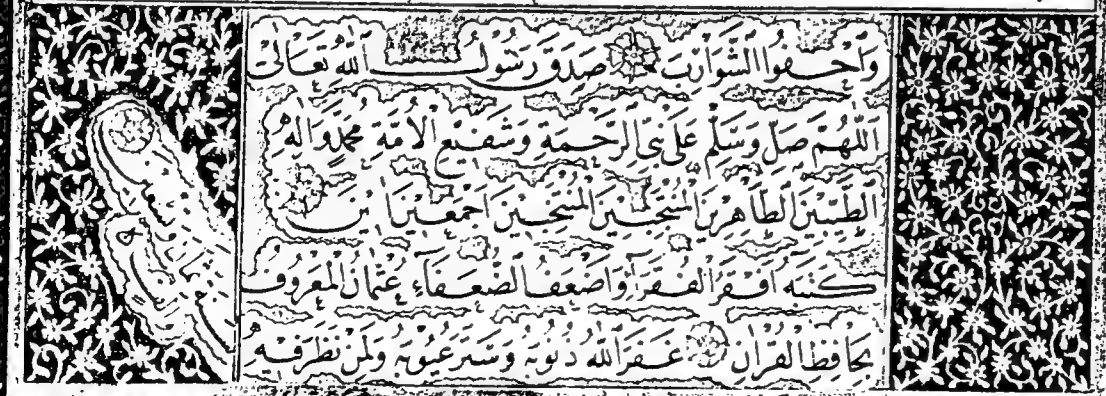 وَاَحْفُوا الشَّوَارِبَ صَدَقَ رَسُولُ اللّٰهِ تَعَالٰى
اَللّٰهُمَّ صَلِّ وَسَلِّمْ عَلٰى نَبِيِّ الرَّحْمَةِ وَشَفِيعِ الْاُمَّةِ مُحَمَّدٍ وَاٰلِهِ
الطَّيِّبِينَ الطَّاهِرِينَ الْمُنْتَجَبِينَ اَجْمَعِينَ
كَتَبَهُ اَفْقَرُ الْفُقَرَاءِ وَاَضْعَفُ الضُّعَفَاءِ عُثْمَانُ الْمَعْرُوفُ
بِحَافِظِ الْقُرْاٰنِ غَفَرَ اللّٰهُ ذُنُوبَهُ وَسَتَرَ عُيُوبَهُ وَلِمَنْ نَظَرَ فِيهِ